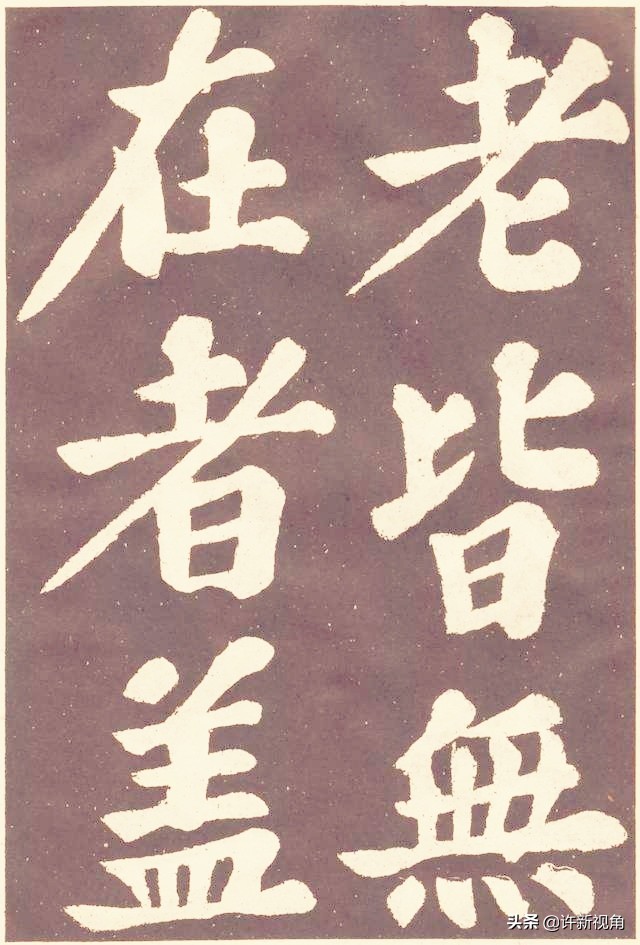 老皆無
在者盖
头条 @许新视角